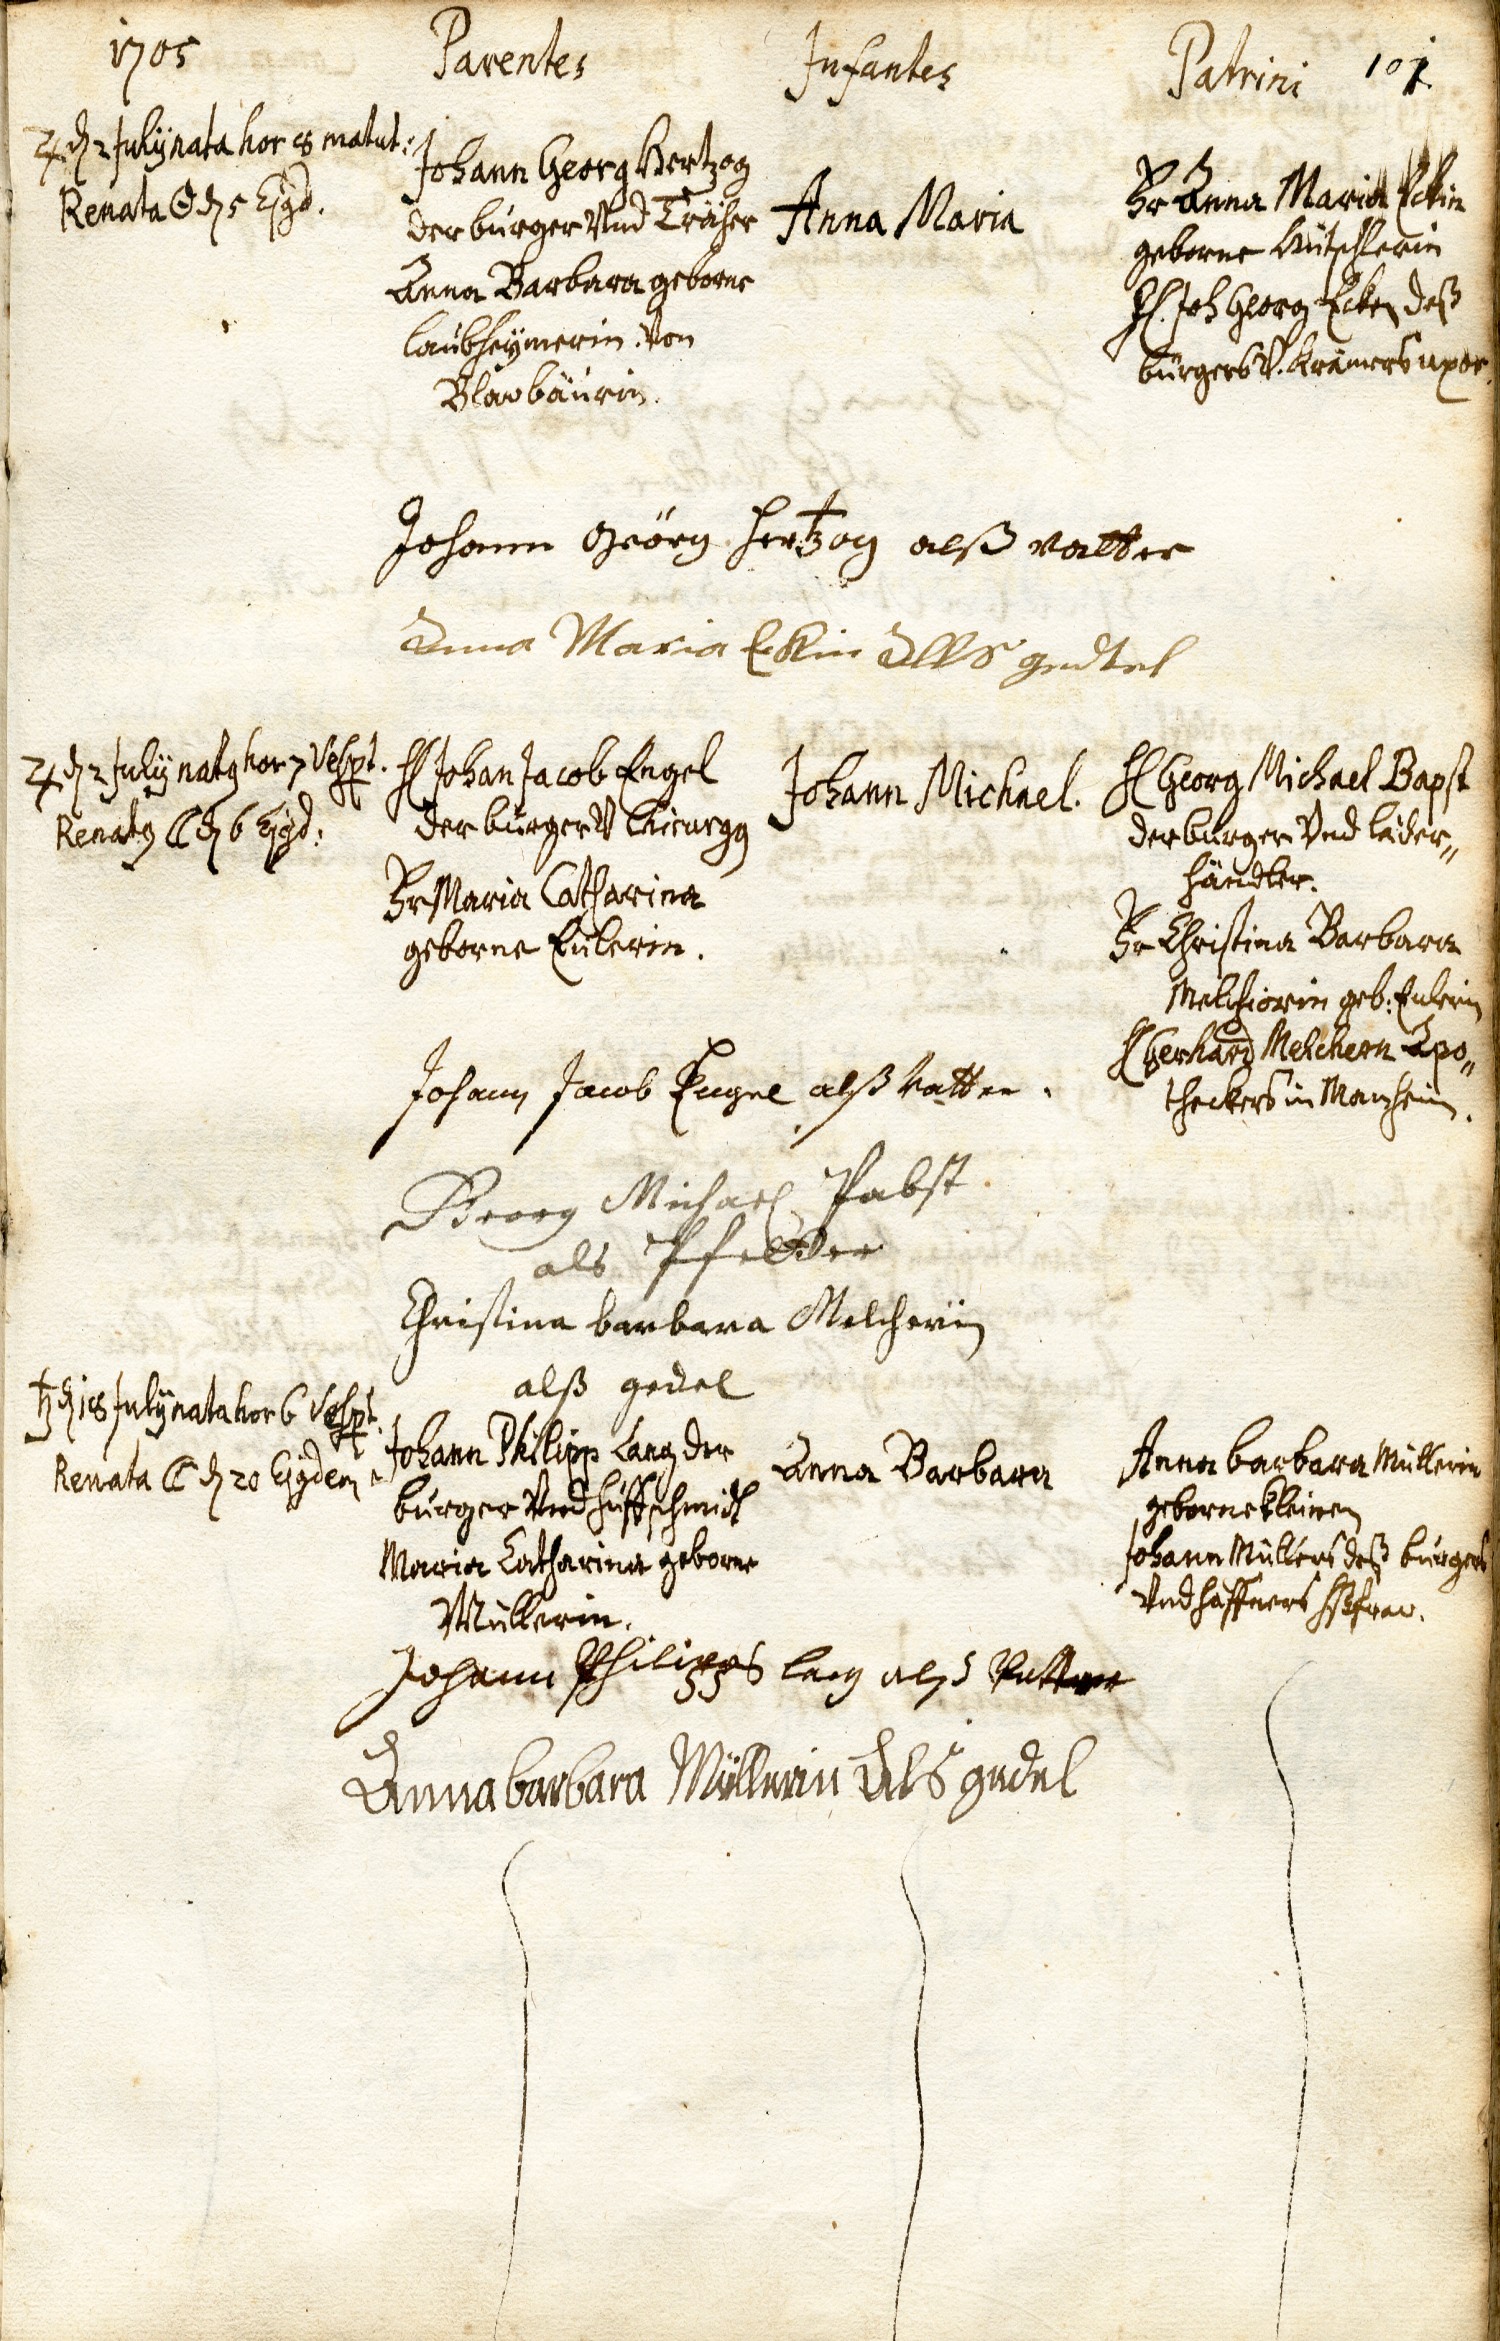 1705 Parentes Infantes Patrini 101
♃ d 2 Julÿ nata hor 8 matut:
Renata ☉ d 5 Ejgd.
Johann Georg Hertzog
der burger Vnd Träher
Anna Barbara geborne
Laubheÿmerin. Von
Blaubäurin.
Anna Maria
Fr Anna Maria Eckin
geborne
H. Joh Georg Ecken deß
bürgers V. Krämers uxor.
Johann Geörg Hertzog alß vatter
Anna Maria Eckin Alls gedtel
♃ d 2 Julÿ nat9 hor 7 Vespt.
Renat9 ☾ d 6 Ejgd:
H Johan Jacob Engel
der burger V Chirurg9
Fr Maria Catharina
geborne Eulerin.
Johann Michael.
H Georg Michael Bapst
der burger Vnd läder„
händler.
Fr Christina Barbara
Melchiorin geb: Eulerin
H Gerhard Melchern Apo„
theckers in Manheim.
Johann Jacob Engel alß Vatter.
Georg Michael Pabst
als Pfetter
Christina barbara Melcherin
alß gedel
♄ d 18 Julÿ nata hor 6 Vespt.
Renata ☾ d 20 Ejgdem
Johann Philipp Lang der
burger Vnd huffschmidt
Maria Catharina geborne
Müllerin.
Anna Barbara
Anna barbara Müllerin
geborne Kleinen
Johann Müllers deß burgers
Vnd haffners hßfraw.
Johann Philipps lang alß Vatter
Anna barbara Müllerin Als gedel